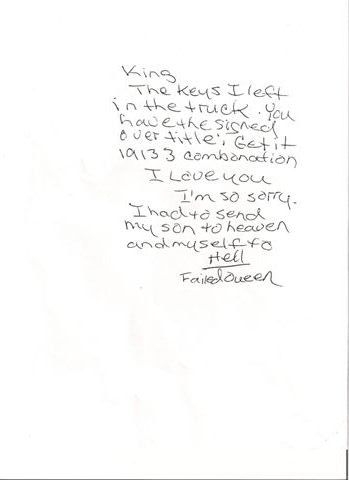 King
The Keys I left
in the truck. You
have the signed
over title; Get it
19133 combonation
I Love you
I'm so sorry.
I had to send
my son to heaven
and myself to
Hell
Failed Queen